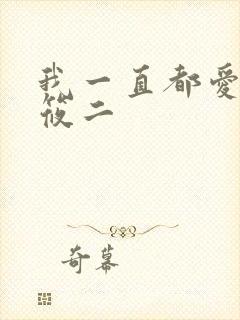 我一直都愛
筱二
奇幕